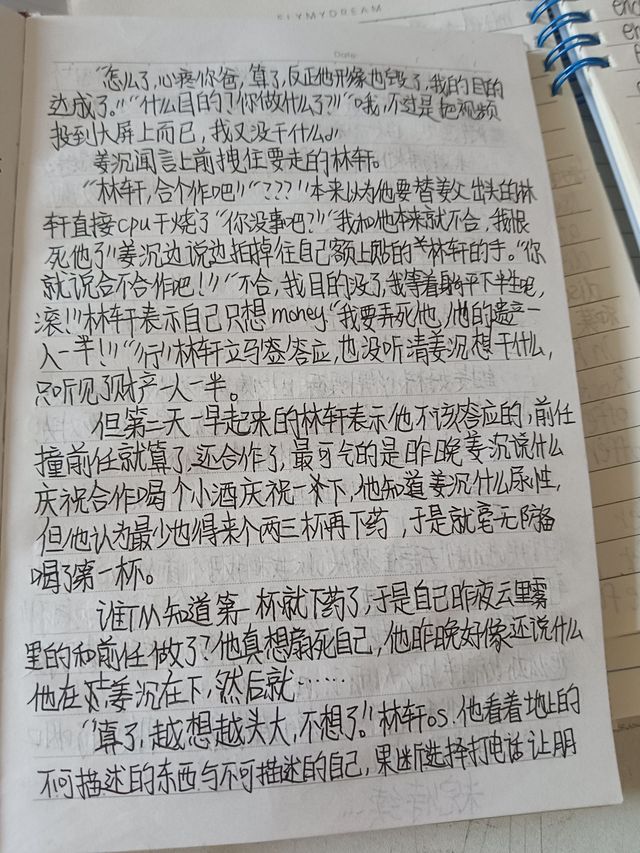 FLYMYDREAM
Date:
“怎么了,心疼你爸,算了,反正他形象也毁了,我的目的
达成了。”“什么目的?你做什么了?”“哦,不过是把视频
投到大屏上而已,我又没干什么。”
姜沉闻言上前拽住要走的林轩。
“林轩,合个作吧!”“???”本来以为他要替姜父出头的林
轩直接cpu干烧了“你没事吧?”“我和他本来就不合,我恨
死他了”姜沉边说边拍掉往自己额上贴的林轩的手。“你
就说合不合作吧!”“不合,我目的没了,我等着躺平下半生呢,
滚!”林轩表示自己只想money“我要弄死他,他的遗产一
人一半!”“行”林轩立马答应,也没听清姜沉想干什么,
只听见了财产一人一半。
但第二天一早起来的林轩表示他不该答应的,前任
撞前任就算了,还合作了,最可气的是昨晚姜沉说什么
庆祝合作喝个小酒庆祝一下,他知道姜沉什么尿性,
但他认为最少也得来个两三杯再下药,于是就毫无防备
喝了第一杯。
谁TM知道第一杯就下药了,于是自己昨夜云里雾
里的和前任做了?他真想扇死自己,他昨晚好像还说什么
他在上姜沉在下,然后就……
“算了,越想越头大,不想了。”林轩os.他看着地上的
不可描述的东西与不可描述的自己,果断选择打电话让朋